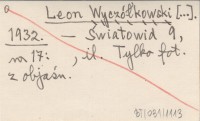 a
Leon Wyczółkowski [...].
1932. – Światowid 9,
na 17: , il. Tylko fot.
z objaśn.
BJ/081/1113